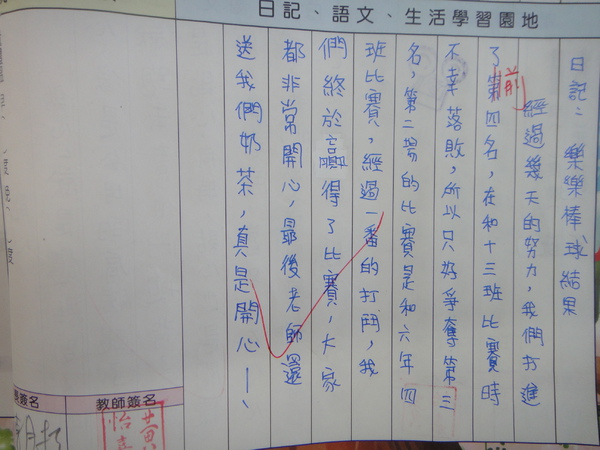 日記、語文、生活學習園地
日記：樂樂棒球結果
經過幾天的努力，我們打進
了第四名，在和十三班比賽時
前
不幸落敗，所以只好爭奪第三
名，第二場的比賽是和六年四
班比賽，經過一番的打鬥，我
們終於贏得了比賽，大家
都非常開心，最後老師還
送我們奶茶，真是開心ㄧ、
教師簽名
簽名
黃怡